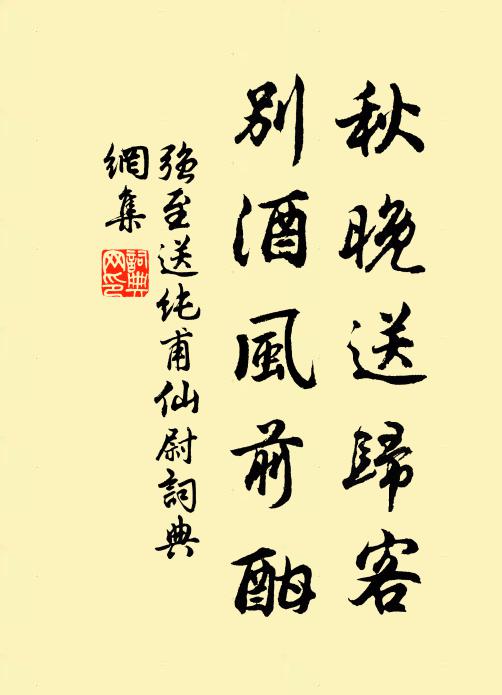 秋晚送歸客
別酒風前酣
強至送純甫仙尉詞典
網集
詞典
网印